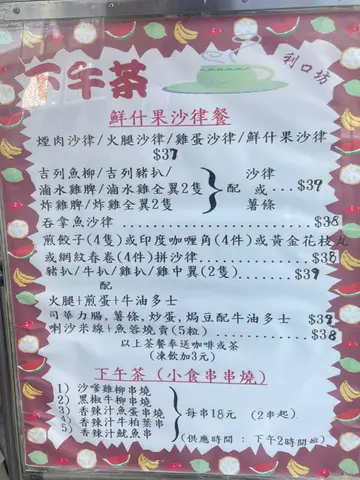 下午茶
利口坊
鮮什果沙律餐
煙肉沙律/火腿沙律/雞蛋沙律/鮮什果沙律
$37
吉列魚柳/吉列豬扒/
滷水雞脾/滷水雞全翼2隻
炸雞脾/炸雞全翼2隻
配
沙律
或
薯條
$39
吞拿魚沙律 $38
煎餃子(4隻)或印度咖喱角(4件)或黃金花枝丸
或網紋春卷(4件)拼沙律 $38
豬扒/牛扒/雞扒/雞中翼(2隻) $39
配
火腿+煎蛋+牛油多士
司華力腸,薯條,炒蛋,焗豆配牛油多士
喇沙米線+魚蓉燒賣(5粒) $38
以上茶餐奉送咖啡或茶
(凍飲加3元)
下午茶(小食串串燒)
1) 沙嗲雞柳串燒
2) 黑椒牛柳串燒
3) 香辣汁魚蛋串燒
4) 香辣汁牛柏葉串
5) 香辣汁魷魚串
每串18元 (2串起)
(供應時間:下午2時開始)